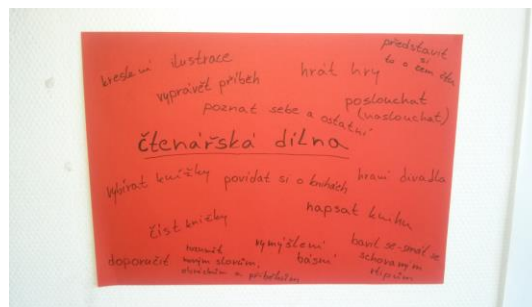 kreslení
ilustrace
představit
si
to o čem čtu
vyprávět příběh
hrát hry
poznat sebe a ostatní
poslouchat
(naslouchat)
čtenářská dílna
vybírat knížky
povídat si o knihách
hraní divadla
číst knížky
napsat knihu
doporučit
rozumět
novým slovům,
a příběhům
vymýšlení
básní
bavit se - smát se
schovaným
vtipům